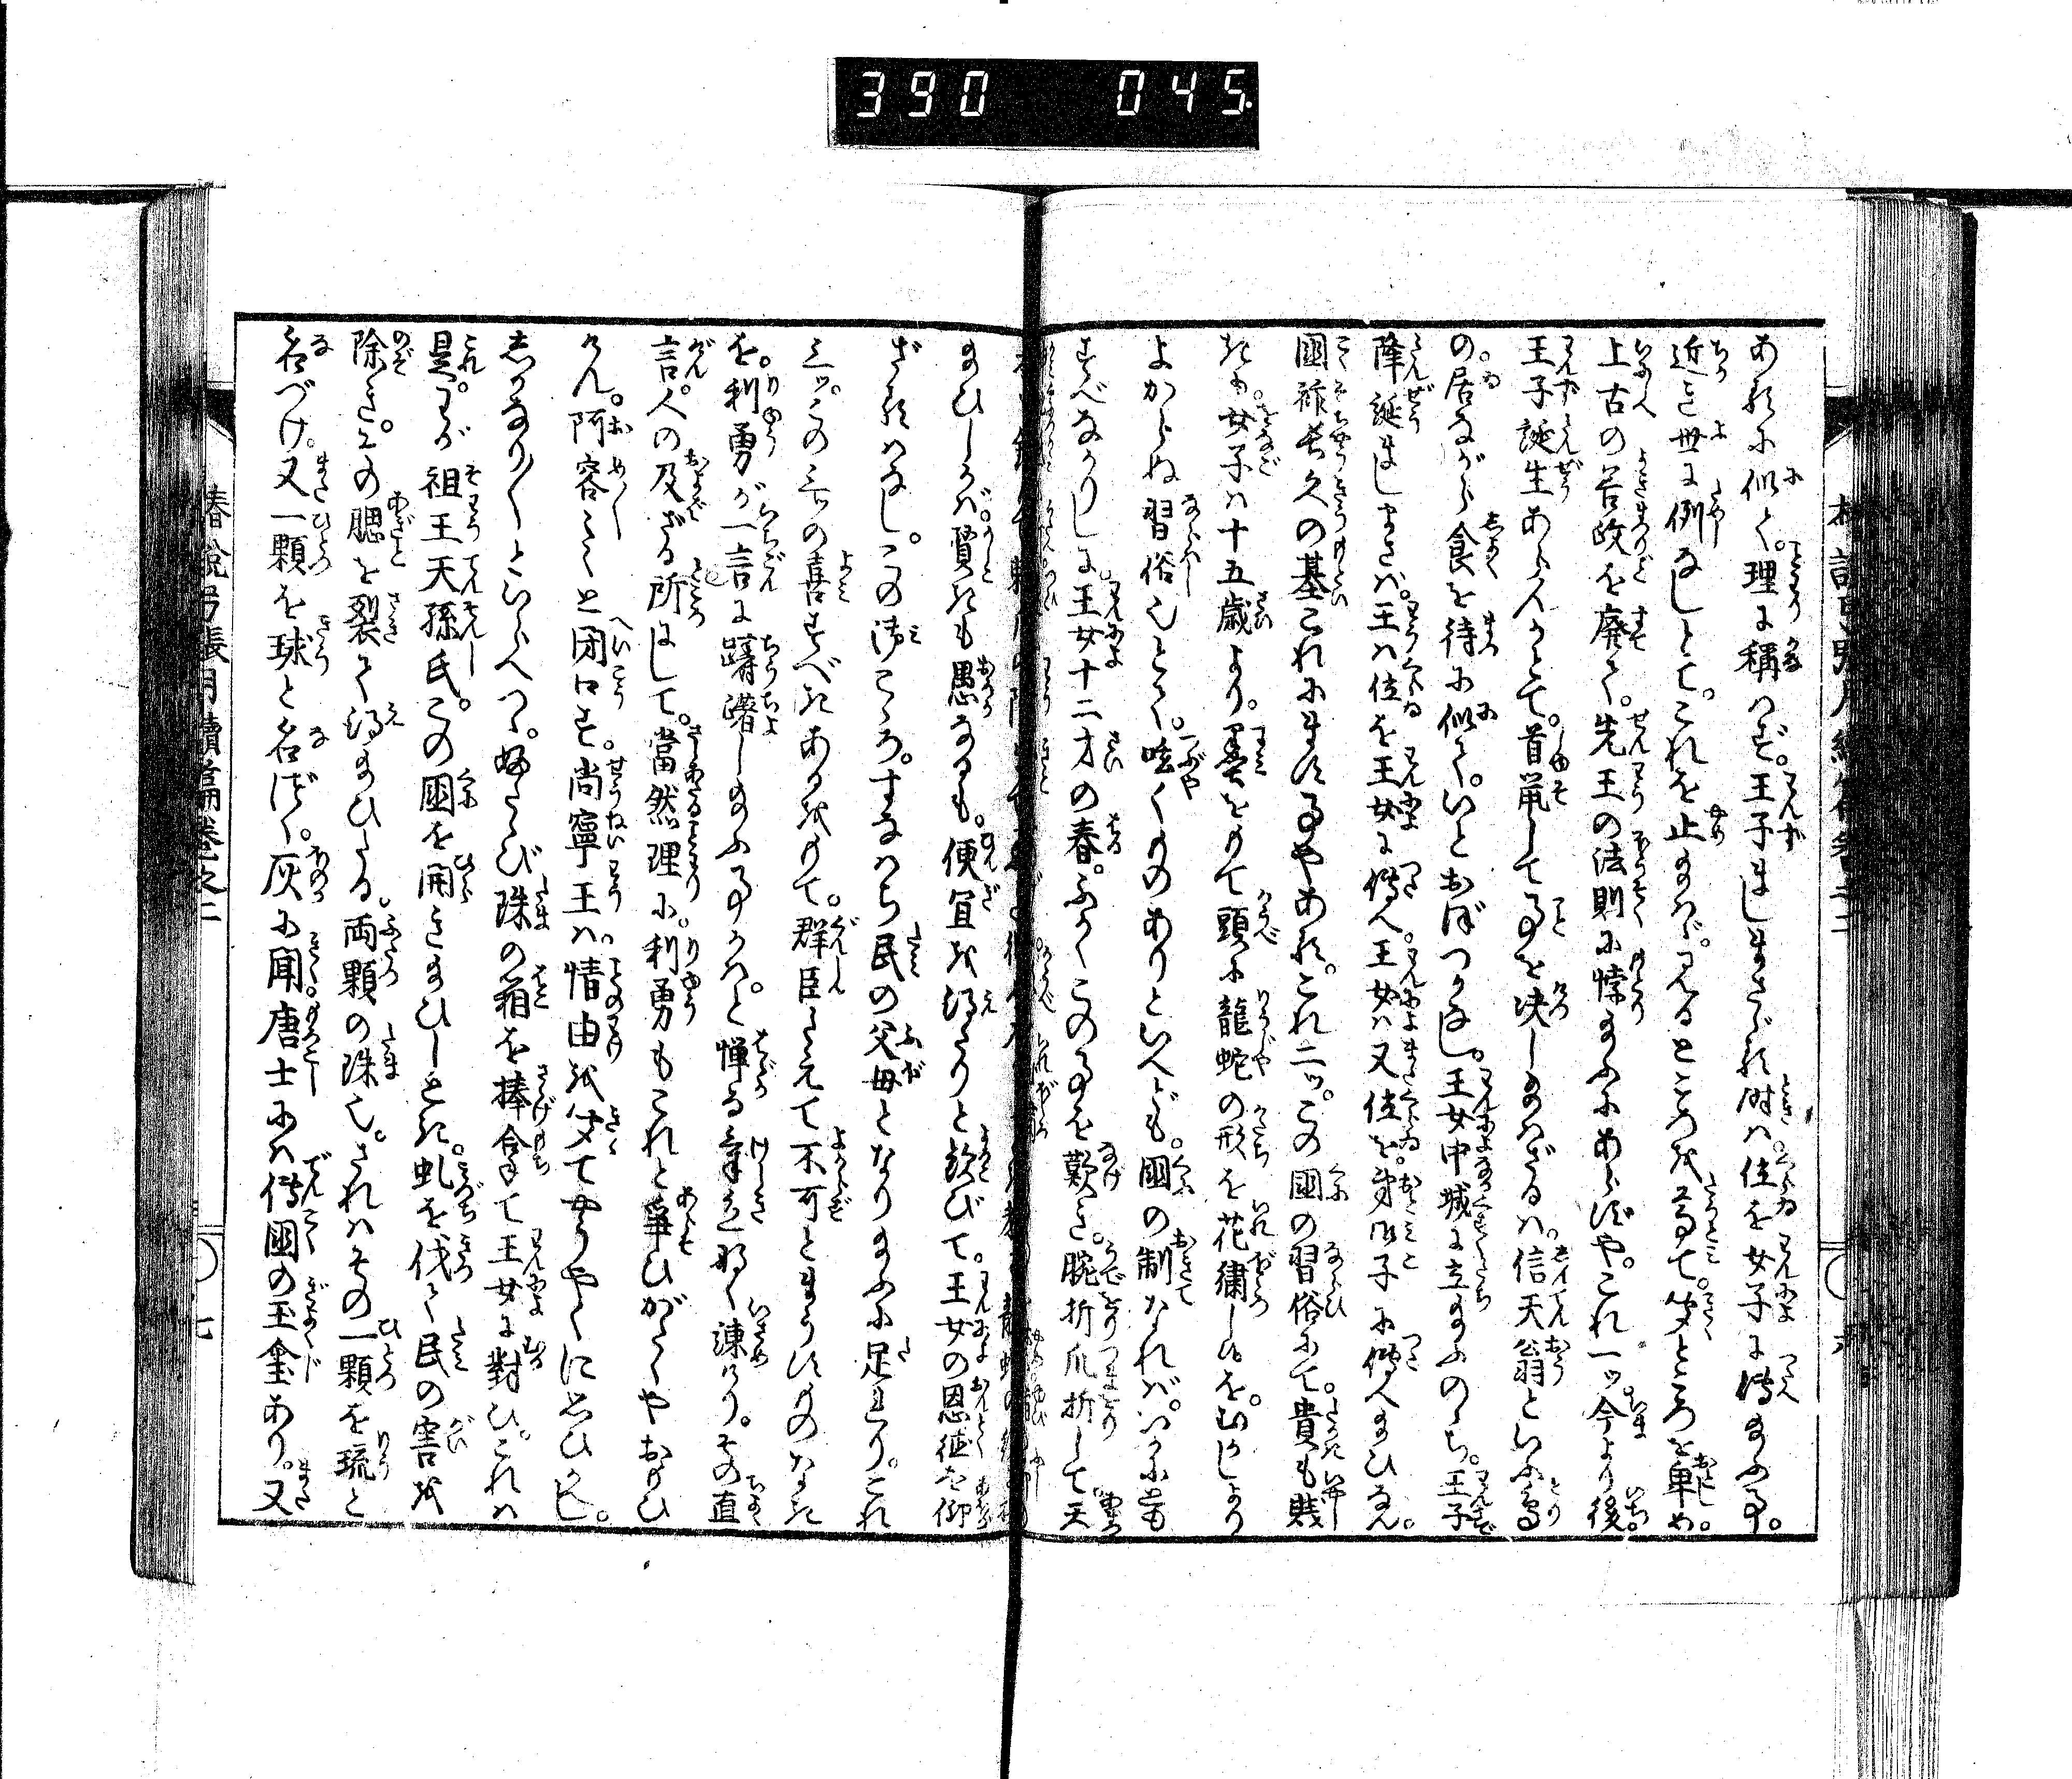 390 045
あるに似て。理に稱はず。王子ましまさざる時は。位を女子に傳へ給ふ事。
近き世に例なしとて。これを止め給はゞ。わるところを尋て。聞ところを卑め。
上古の善政を廃て。先王の法則に悖り給ふにあらずや。これ一ッ。今より後。
王子誕生あらんかとて。首鼠して事を決し給はざるは。信天翁といふ鳥
の。居ながら食を待に似て。いとおぼつかなし。王女中城に立給ふのち。王子
降誕ましまさば。王は位を王女に傳へ。王女は又位を。弟御子に傳へ給ひなん。
國祚長久の基これにます事やある。これ二ッ。この國の習俗にて。貴も賎
きも。女子は十五歳より。墨をもて頭に龍蛇の形を花繍し候を。むかしより
よからぬ習俗也とて。呟くものありといへども。國の制なれば。いかにとも
すべなかりしに。王女十二才の春。ふかくこの事を歎き。腕折爪折して。天
給ひしかば。賢きも愚なるも。便宜を得たりと歓びて。王女の恩徳を仰
ざるはなし。この御こゝろ。すなはち民の父母となり給ふに足れり。これ
三ッ。この三ッの喜すべきあるをもて。群臣たえて不可とまうすものなき
を。利勇が一言に躊躇し給ふ事かは。と憚る氣色なく諫けり。その直
言。人の及ざる所にして。當然理に。利勇もこれと爭ひがたくやおもひ
けん。阿容〳〵と閉口す。尚寧王は。情由を聞てやうやくに思ひかへし。
しかなり〳〵といらへつゝ。ふたゝび珠の箱を捧合て王女に對ひ。これは
是。わが祖王天孫氏。この國を開き給ひしとき。虬を伐て民の害を
除き。その腮を裂て得給ひたる。両顆の珠也。されはその一顆を琉と
名づけ。又一顆を球と名づく。灰に聞。唐土には傳國の玉璽あり。又
椿說弓張月續篇卷之二 七